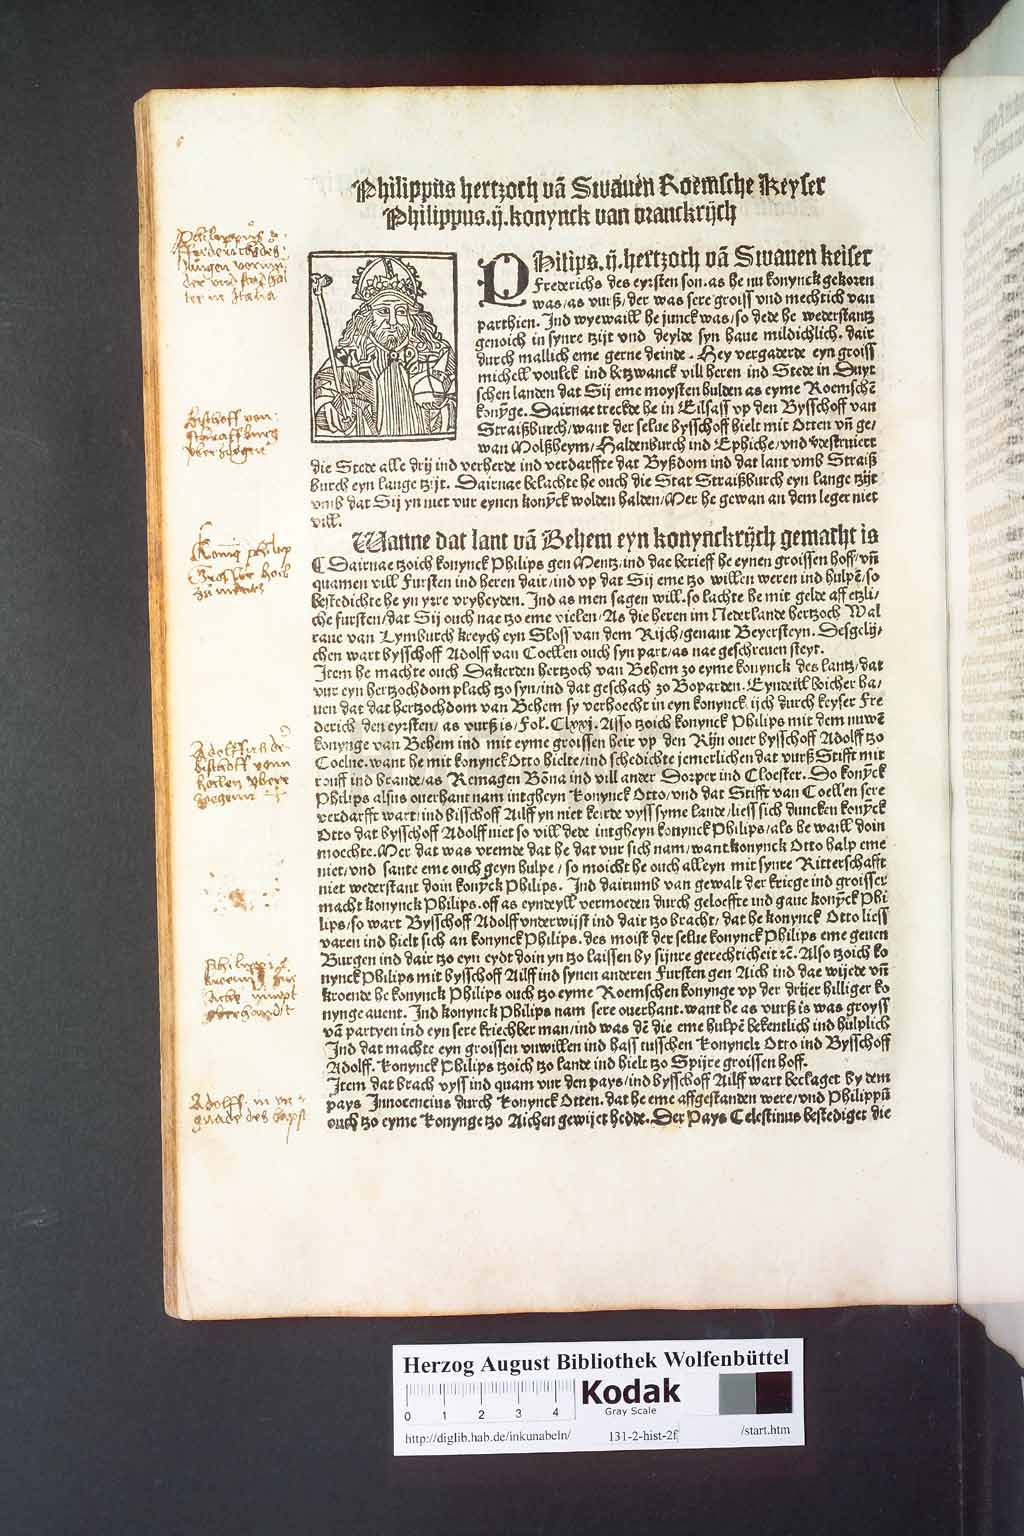 Philippus hertzoch vā Swauen Roemsche Keyser
Philippus.ij.konynck van vranckrijch
PHilips.ij.hertzoch vā Swauen keiser
Frederichs des eyrsten son.as he nu konynck gekoren
was/as vurß/der was sere groiss vnd mechtich van
parthien. Ind wyewaill he junck was/so dede he wederstantz
genoich in synre tzijt vnd deylde syn haue mildichlich. dair
durch mallich eme gerne deinde. Hey vergaderde eyn groiss
michell voulck ind betzwanck vill heren ind Stede in Duyt
schen landen dat Sij eme moysten hulden as eyme Roemschē
konyge. Dairnae treckde he in Eilsass vp den Bysschoff van
Straißburch/want der selue bysschoff hielt mit Otten vñ ge/
wan Molßheym/Haldenburch ind Ephiche/vnd vdestruiert
die Stede alle drij ind verherde ind verdarffte dat Byßdom ind dat lant vmb Straiß
burch eyn lange tzijt. Dairnae belachte he ouch die Stat Straißburch eyn lange tzijt
vmb dat Sij yn niet vur eynen konȳck wolden halden/Mer he gewan an dem leger niet
vill.
Wanne dat lant vā Behem eyn konynckrijch gemacht is
¶ Dairnae tzoich konynck Philips gen Mentz/ind dae berieff he eynen groissen hoff/vñ
quamen vill Fursten ind heren dair/ind vp dat Sij eme tzo willen weren ind hulpē/so
bestedichte he yn yrre vryheyden. Ind as men sagen will.so lachte he mit gelde aff etzli/
che fursten/dat Sij ouch nae tzo eme vielen/As die heren im Nederlande hertzoch Wal
raue van Lymburch kreych eyn Sloss van dem Rijch/genant Beyersteyn. Desgelij/
chen wart bysschoff Adolff van Coellen ouch syn part/as nae geschreuen steyt.
Item he machte ouch Dakerden hertzoch van Behem zo eyme konynck des lantz/dat
vur eyn hertzochdom plach tzo syn/ind dat geschach zo Boparden. Eyndeill boicher ha/
uen dat dat hertzochdom van Behem sy verhoecht in eyn konynckrijch durch keyser Fre
derich den eyrsten/as vurß is/Fol. Clxxj. Also tzoich konynck Philips mit dem nuwē
konynge van Behem ind mit eyme groissen heir vp den Rijn ouer bysschoff Adolff tzo
Coelne.want he mit konynck Otto hielte/ind schedichte jemerlichen dat vurß Stifft mit
rouff ind brande/as Remagen Bōna ind vill ander Dorper ind Cloester. Do konȳck
Philips alsus ouerhant nam intgheyn Konynck Otto/vnd dat Stifft van Coellen sere
verdarfft wart/ind bisschoff Ailff yn niet keirde vyss syme lande/liess sich duncken konȳck
Otto dat bysschoff Adolff niet so vill dede intgheyn konynck Philips/als he waill doin
moechte.Mer dat was vremde dat he dat vur sich nam/want konynck Otto halp eme
niet/vnd sante eme ouch geyn hulpe/so moicht he ouch alleyn mit synre Ritterschafft
niet wederstant doin konȳck Philips. Ind dairumb van gewalt der kriege ind groisser
macht konynck Philips.off as eyndeyll vermoeden durch geloeffte ind gaue konȳck Phi
lips/so wart Bysschoff Adolff vnderwijst ind dair tzo bracht/dat he konynck Otto liess
varen ind hielt sich an konynck Philips.des moist der selue konynck Philips eme geuen
Burgen ind dair tzo eyn eydt doin yn tzo laissen by sijnre gerechticheit ꝛc. Also tzoich ko
nynck Philips mit bysschoff Ailff ind synen anderen Fursten gen Aich ind dae wijede vñ
kroende he konynck Philips ouch tzo eyme Roemschen konynge vp der drijer hilliger ko
nynge auent. Ind konynck Philips nam sere ouerhant.want he as vurß is was groyss
vā partyen ind eyn sere kriechber man/ind was dē die eme hulpē bekentlich ind hulplich
Ind dat machte eyn groissen vnwillen ind hass tusschen Konynck Otto ind Bysschoff
Adolff. Konynck Philips tzoich tzo lande ind hielt tzo Spijre groissen hoff.
Item dat brach vyss ind quam vur den pays/ind bysschoff Ailff wart beclaget by dem
pays Innocencius durch Konynck Otten.dat he eme affgestanden were/vnd Philippū
ouch tzo eyme Konynge tzo Aichen gewijet hedde. Der Pays Celestinus bestediget die
Bisthoff von
Straassburg
vberzogen
Konnig philip
zu mentz
Adolff in vn
gnade des bapst
Herzog August Bibliothek Wolfenbüttel
0 1 2 3 4
Kodak
Gray Scale
http://diglib.hab.de/inkunabeln/ 131-2-hist-2f /start.htm